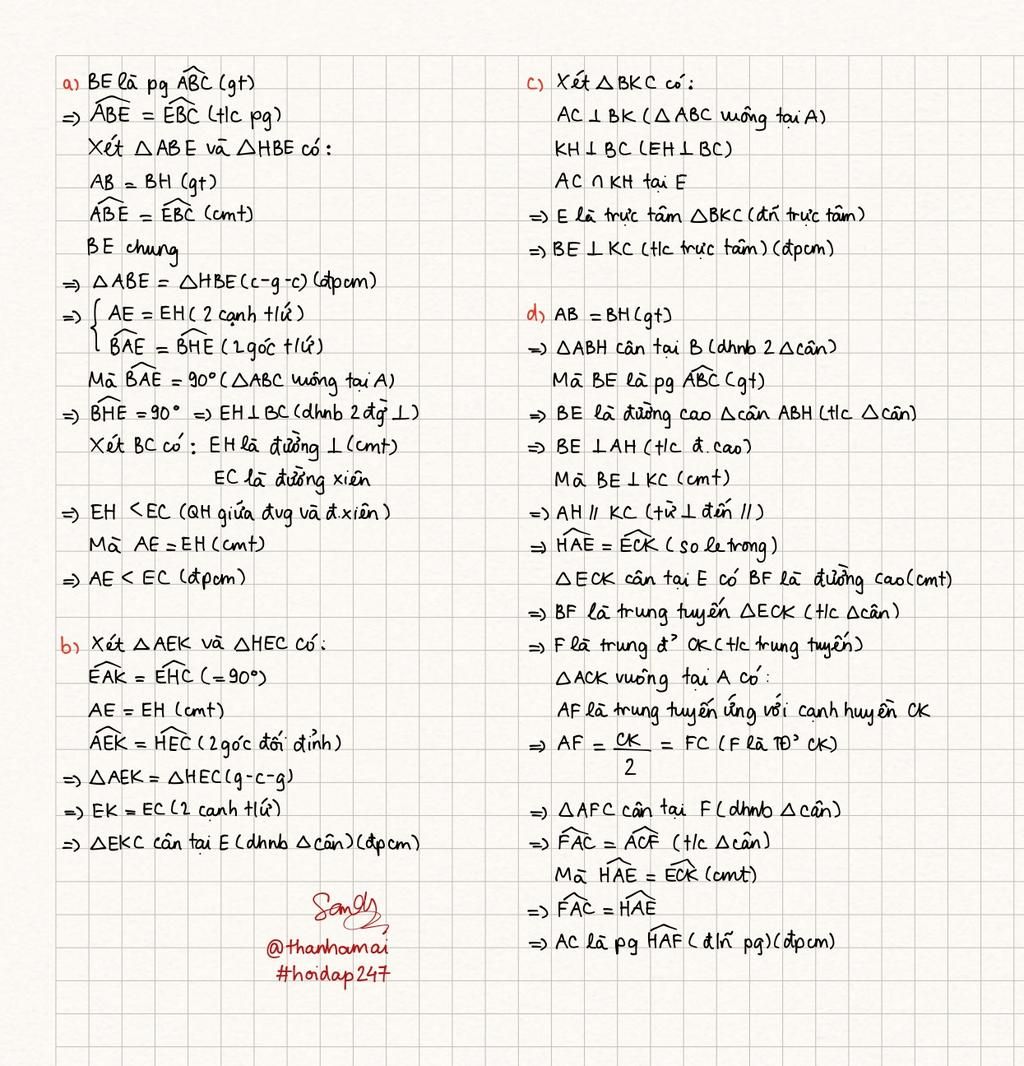 a) BE là pg ABC (gt)
=> ABE = EBC (t/c pg)
Xét △ABE và △HBE có:
AB = BH (gt)
ABE = EBC (cmt)
BE chung
=> △ABE = △HBE (c-g-c) (đpcm)
=> { AE = EH (2 cạnh t/ứ)
BAE = BHE (2 góc t/ứ)
Mà BAE = 90° (△ABC vuông tại A)
=> BHE = 90° => EH ⊥ BC (dhnb 2 đg̀ ⊥)
Xét BC có: EH là đường ⊥ (cmt)
EC là đường xiên
=> EH < EC (QH giữa đvg và đ.xiên)
Mà AE = EH (cmt)
=> AE < EC (đpcm)
b) Xét △AEK và △HEC có:
EAK = EHC (=90°)
AE = EH (cmt)
AEK = HEC (2 góc đối đỉnh)
=> △AEK = △HEC (g-c-g)
=> EK = EC (2 cạnh t/ứ)
=> △EKC cân tại E (dhnb △cân) (đpcm)
Sandy
@thanhamai
#hoidap247
c) Xét △BKC có:
AC ⊥ BK (△ABC vuông tại A)
KH ⊥ BC (EH ⊥ BC)
AC ∩ KH tại E
=> E là trực tâm △BKC (đ/ñ trực tâm)
=> BE ⊥ KC (t/c trực tâm) (đpcm)
d) AB = BH (gt)
=> △ABH cân tại B (dhnb 2 △cân)
Mà BE là pg ABC (gt)
=> BE là đường cao △cân ABH (t/c △cân)
=> BE ⊥ AH (t/c đ.cao)
Mà BE ⊥ KC (cmt)
=> AH // KC (từ ⊥ đến //)
=> HAE = ECK (so le trong)
△ECK cân tại E có BF là đường cao (cmt)
=> BF là trung tuyến △ECK (t/c △cân)
=> F là trung đ' CK (t/c trung tuyến)
△ACK vuông tại A có:
AF là trung tuyến ứng với cạnh huyền CK
=> AF = CK/2 = FC (F là TĐ' CK)
=> △AFC cân tại F (dhnb △cân)
=> FAC = ACF (t/c △cân)
Mà HAE = ECK (cmt)
=> FAC = HAE
=> AC là pg HAF (đ/ñ pg) (đpcm)